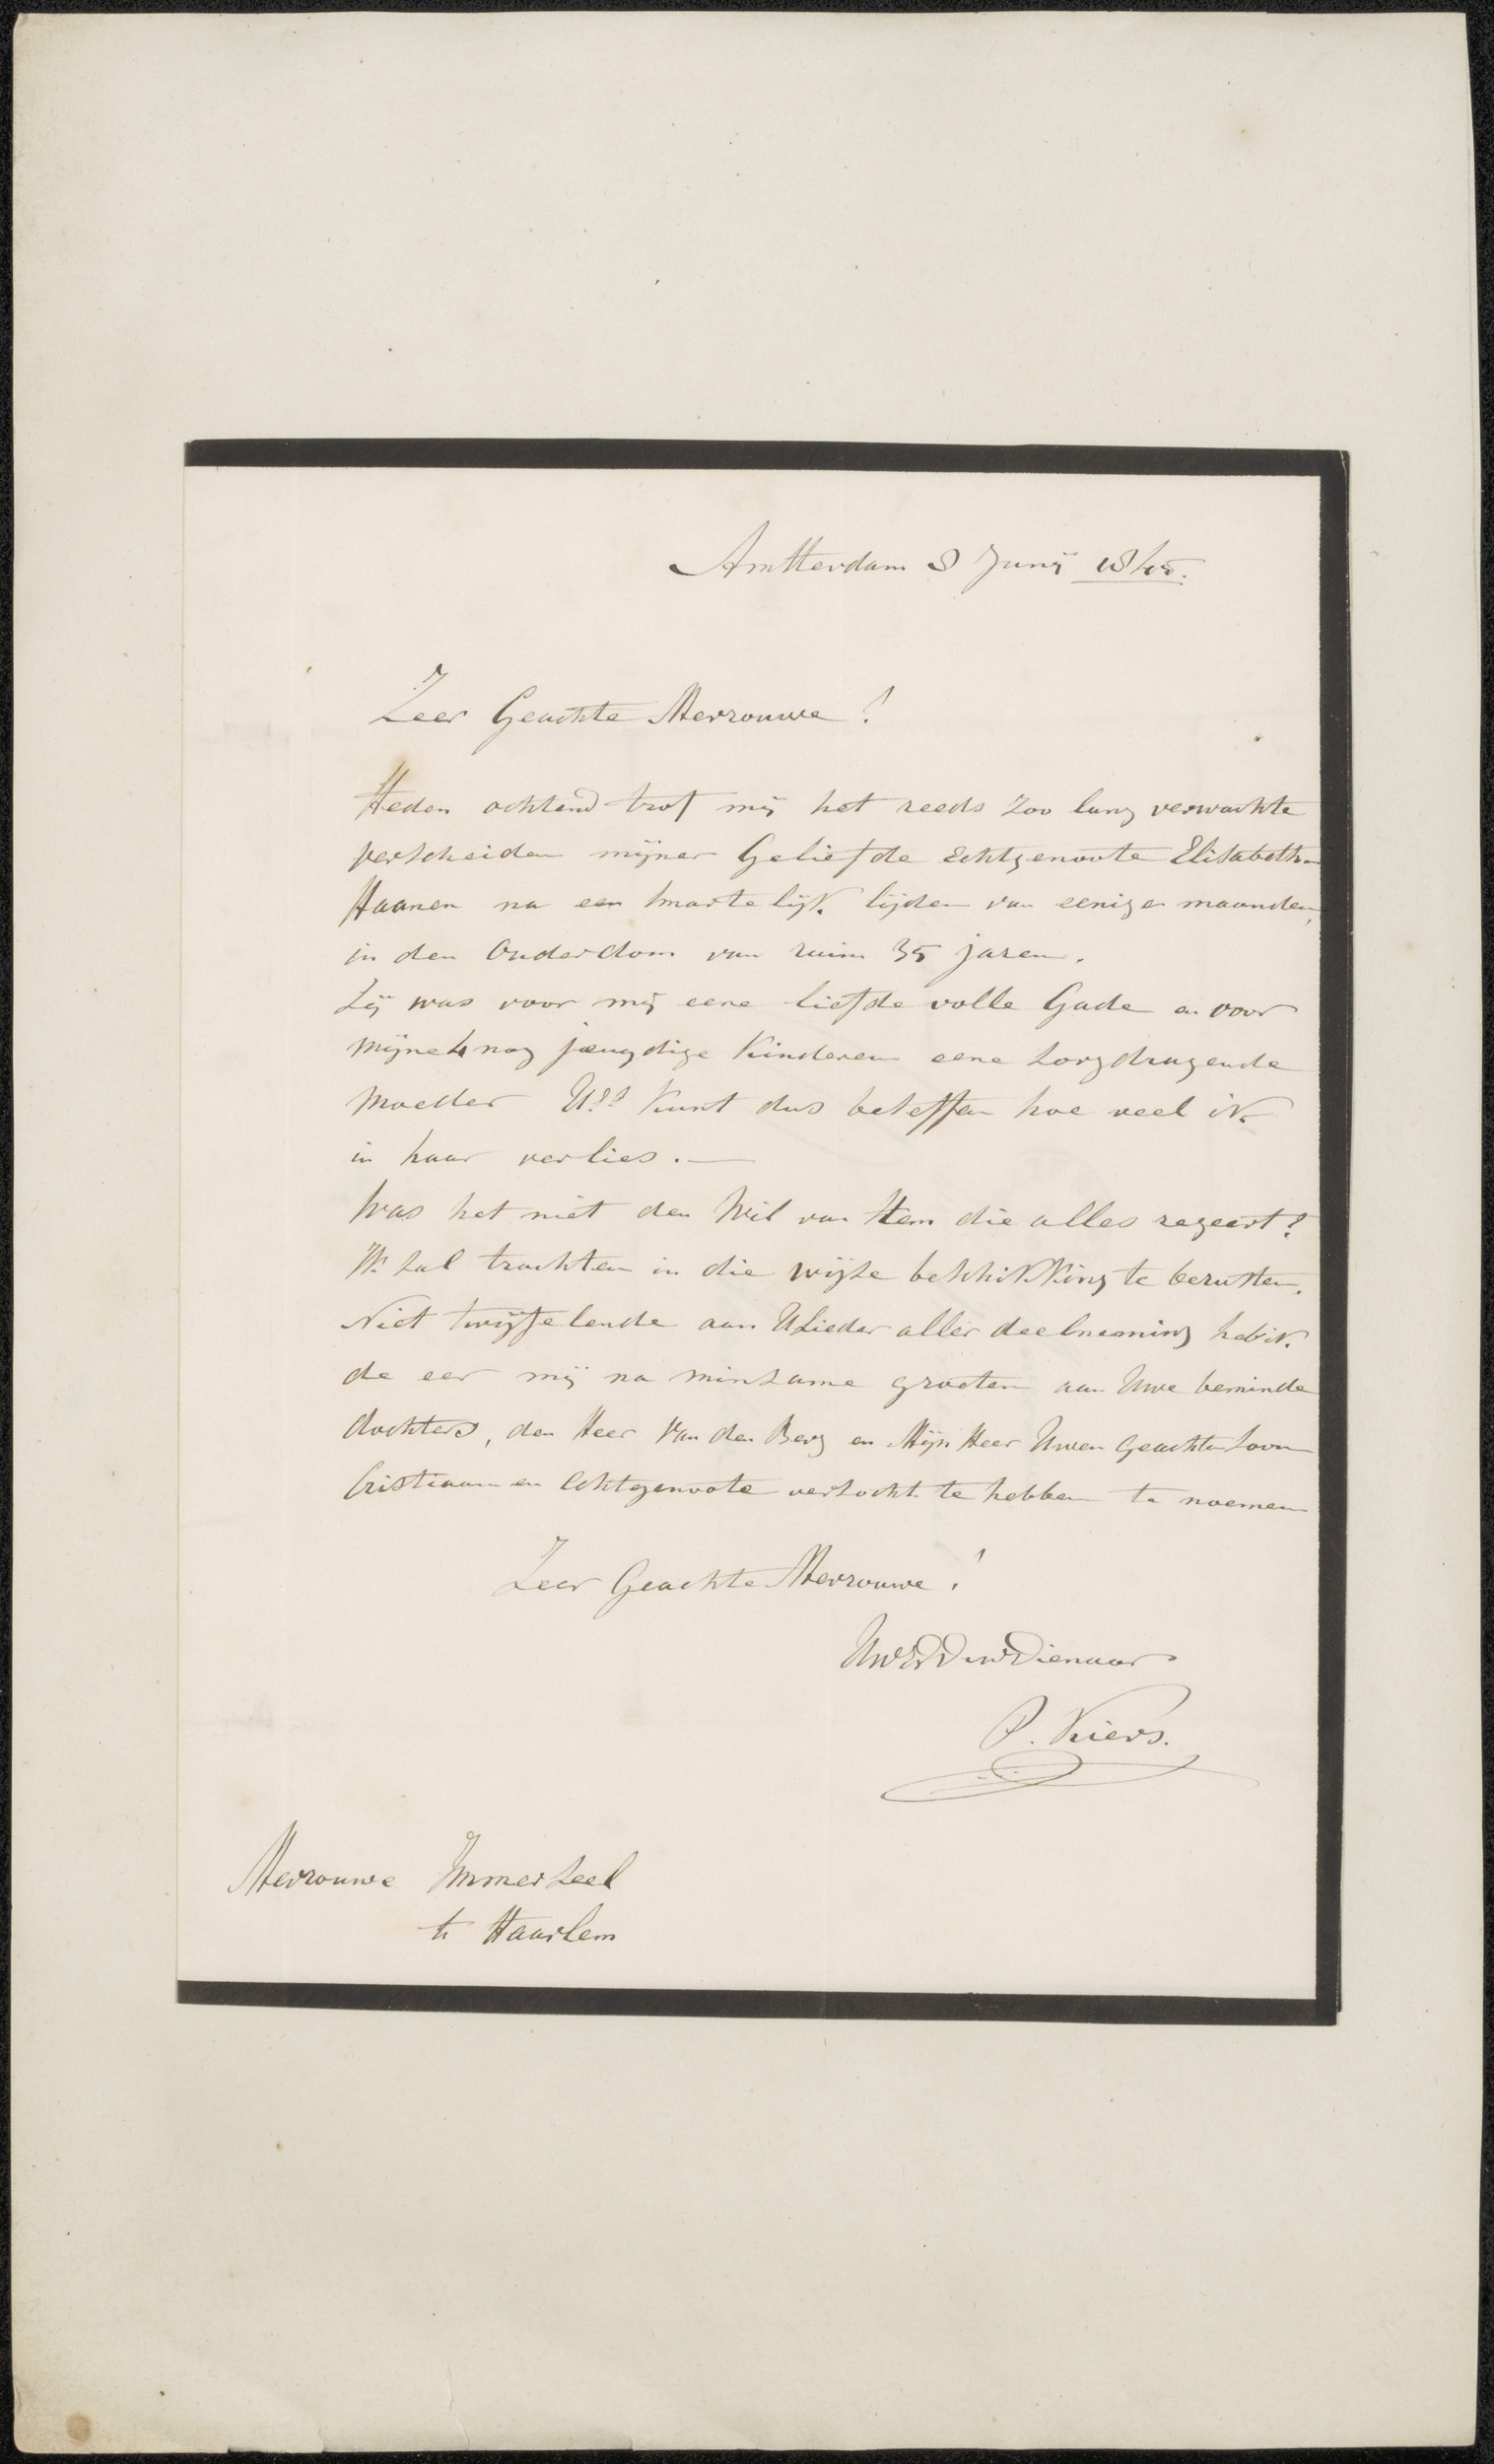 Amsterdam 8 Junij 1845.
Zeer Geachte Mevrouwe!
Heden ochtend trof mij het reeds zoo lang verwachte
verscheiden mijner Geliefde Echtgenoote Elisabeth
Haanen na een smartelijk lijden van eenige maanden,
in den Ouderdom van ruim 35 jaren.
Zij was voor mij eene liefde volle Gade en voor
mijne 4 nog jeugdige Kinderen eene zorgdragende
Moeder Kunt dus beseffen hoe veel ik
in haar verlies. —
Was het niet den Wil van Hem die alles regeert?
Ik zal trachten in die wijze beschikking te berusten.
Niet twijfelende aan Ulieder aller deelneming heb ik
de eer mij na minzame groeten aan Uwe beminde
dochters, den Heer Van den Berg en Mijn Heer Uwen Geachte Zoon
Cristiaan en Echtgenoote verzocht te hebben te noemen
Zeer Geachte Mevrouwe!
UwEdDwDienaar
P. Kiers.
Mevrouwe Immerzeel
te Haarlem